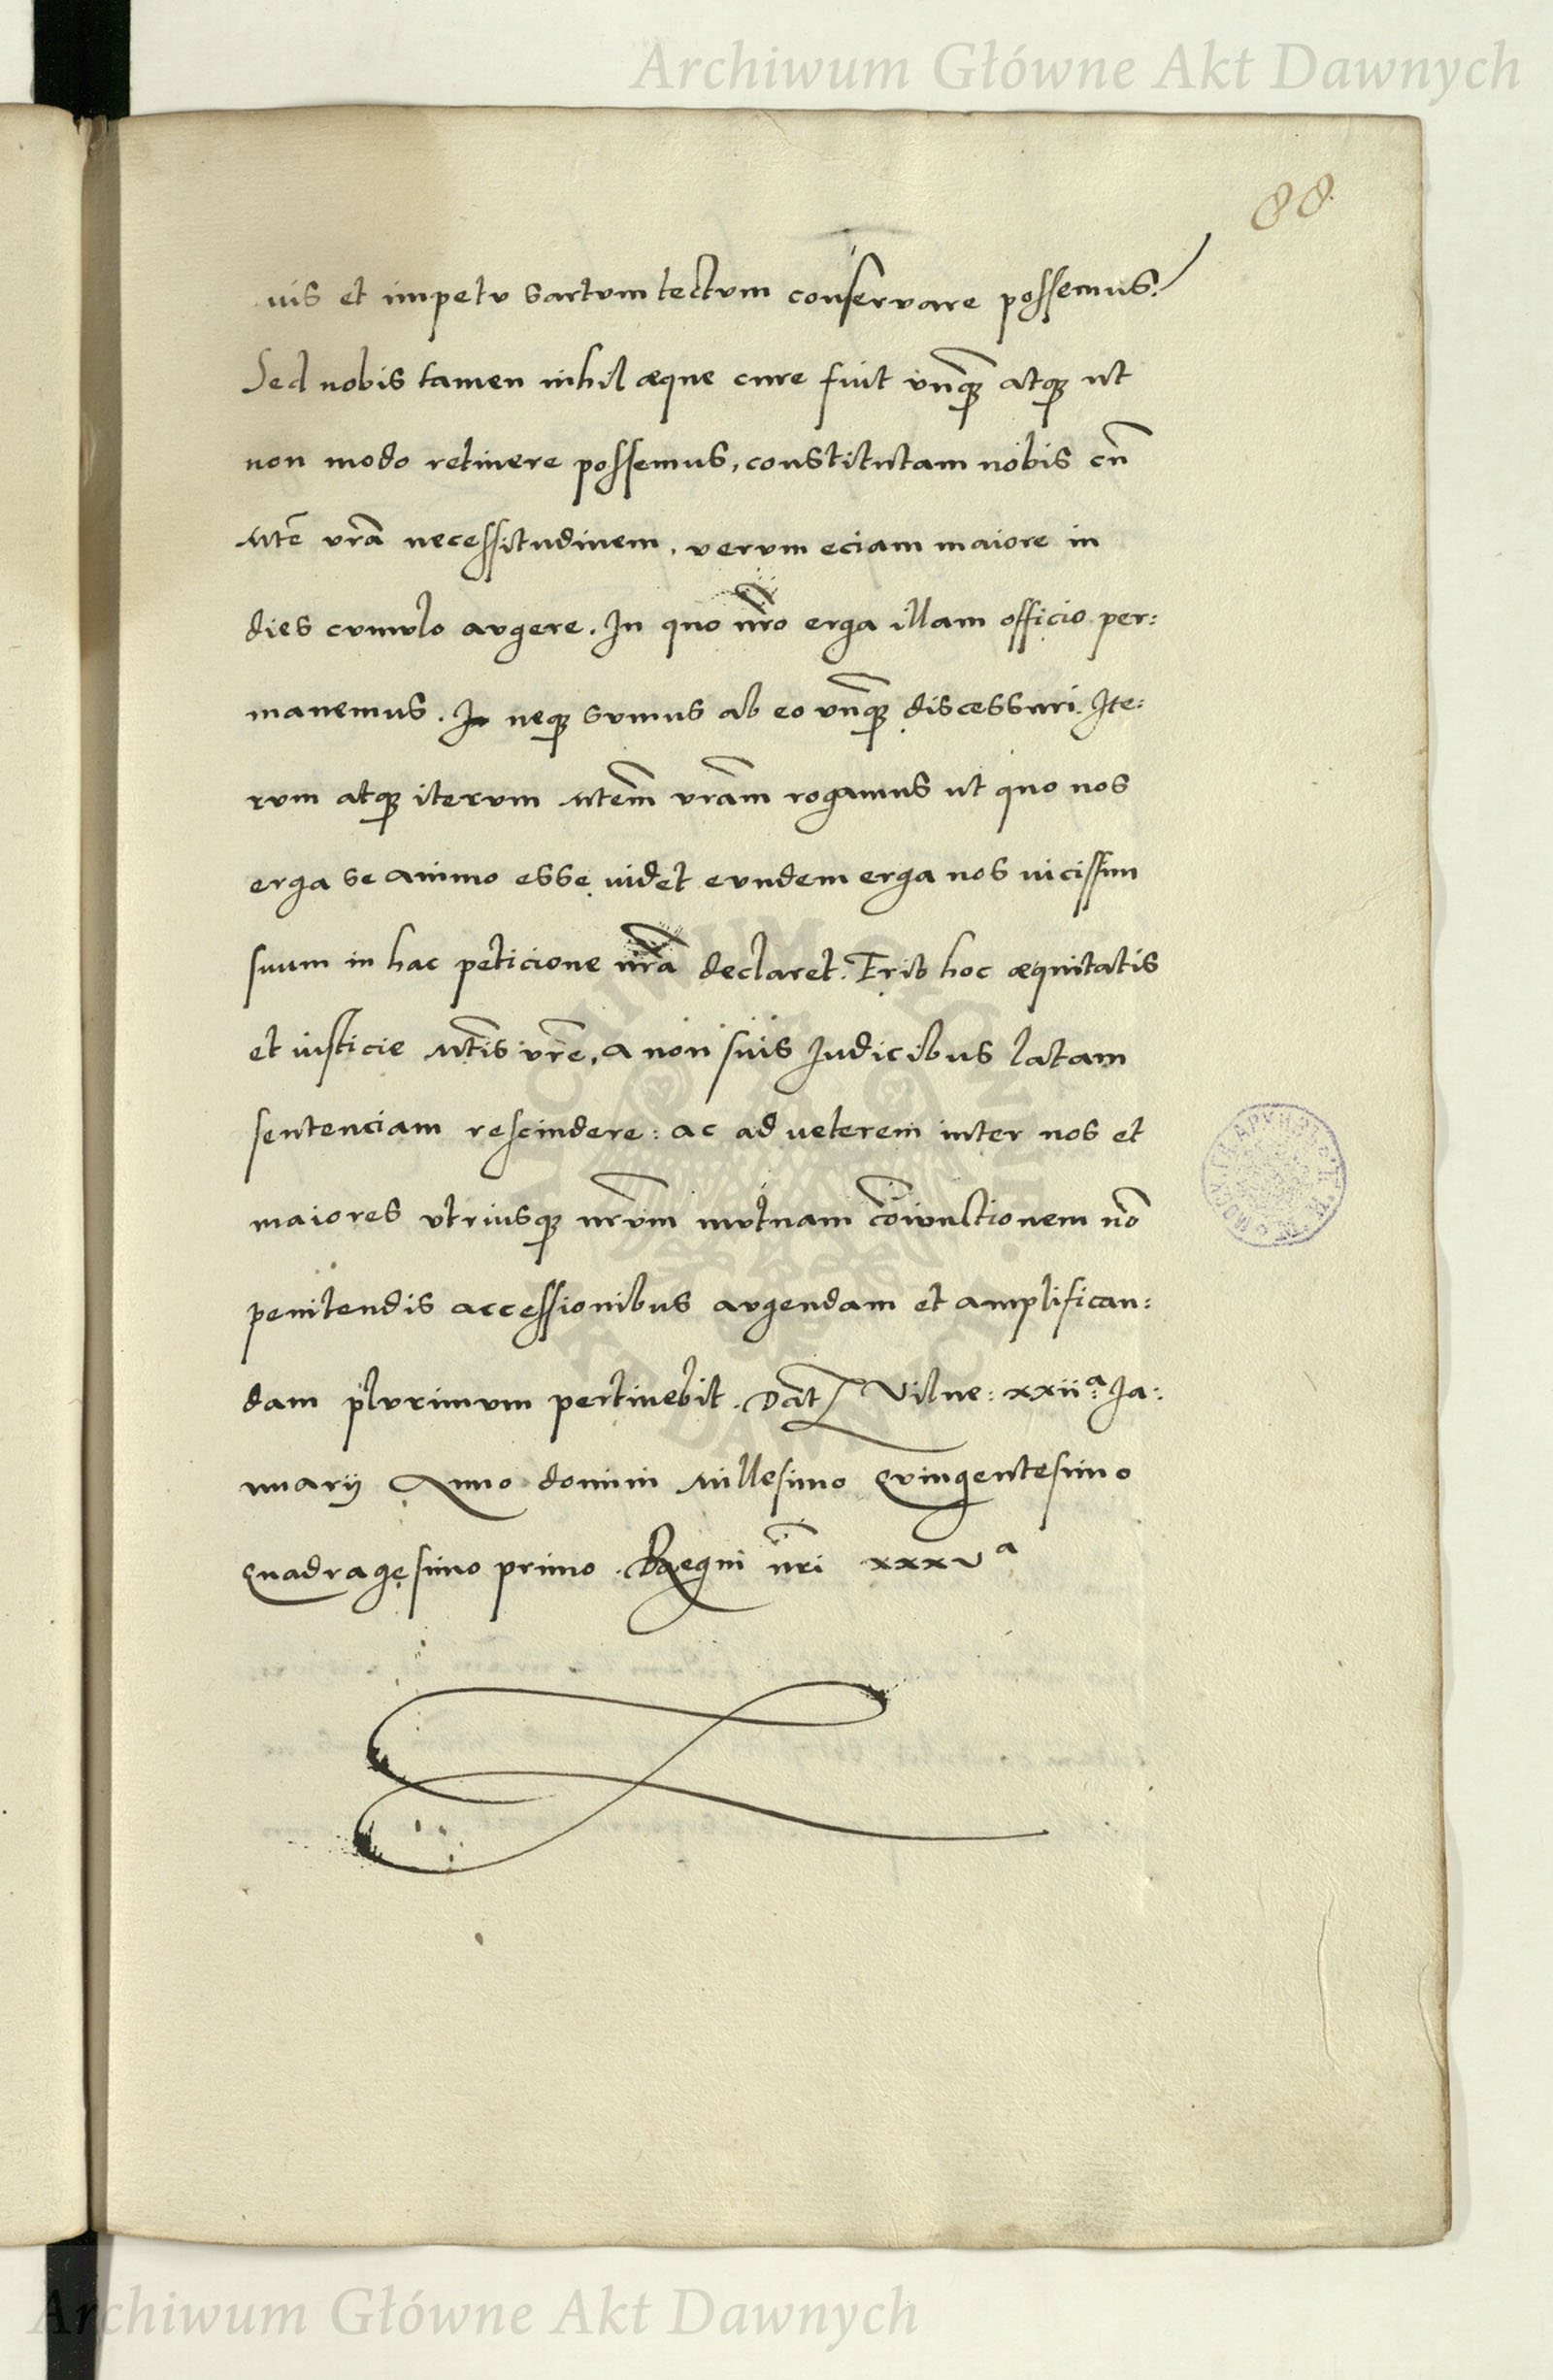 Archiwum Główne Akt Dawnych
88.
uis et impetu sartum tectum conseruare possemus.
Sed nobis tamen nihil æque cure fuit vnq̃ꝫ atqꝫ ut
non modo retinere possemus, constitutam nobis cũ
Mte vrã necessitudinem, verum eciam maiore in
dies cumulo augere. In quo nr̃o erga illam officio per:
manemus. In neqꝫ sumus ab eo vnq̃ꝫ discessuri. Ite:
rum atqꝫ iterum Mtem vrãm rogamus ut quo nos
erga se animo esse videt eundem erga nos vicissim
suum in hac peticione nrã declaret. Erit hoc æquitatis
et iusticie Mtis vrẽ, a non suis Iudicibus latam
sentenciam rescindere: ac ad veterem inter nos et
maiores utriusqꝫ nrũm mutuam cõiunctionem nõ
penitendis accessionibus augendam et amplifican:
dam plurimum pertinebit. Dat Vilne: xxiiª: Ia:
nuarij Anno domini Millesimo Quingentesimo
Quadragesimo primo. Regni nr̃i xxxvª
Archiwum Główne Akt Dawnych